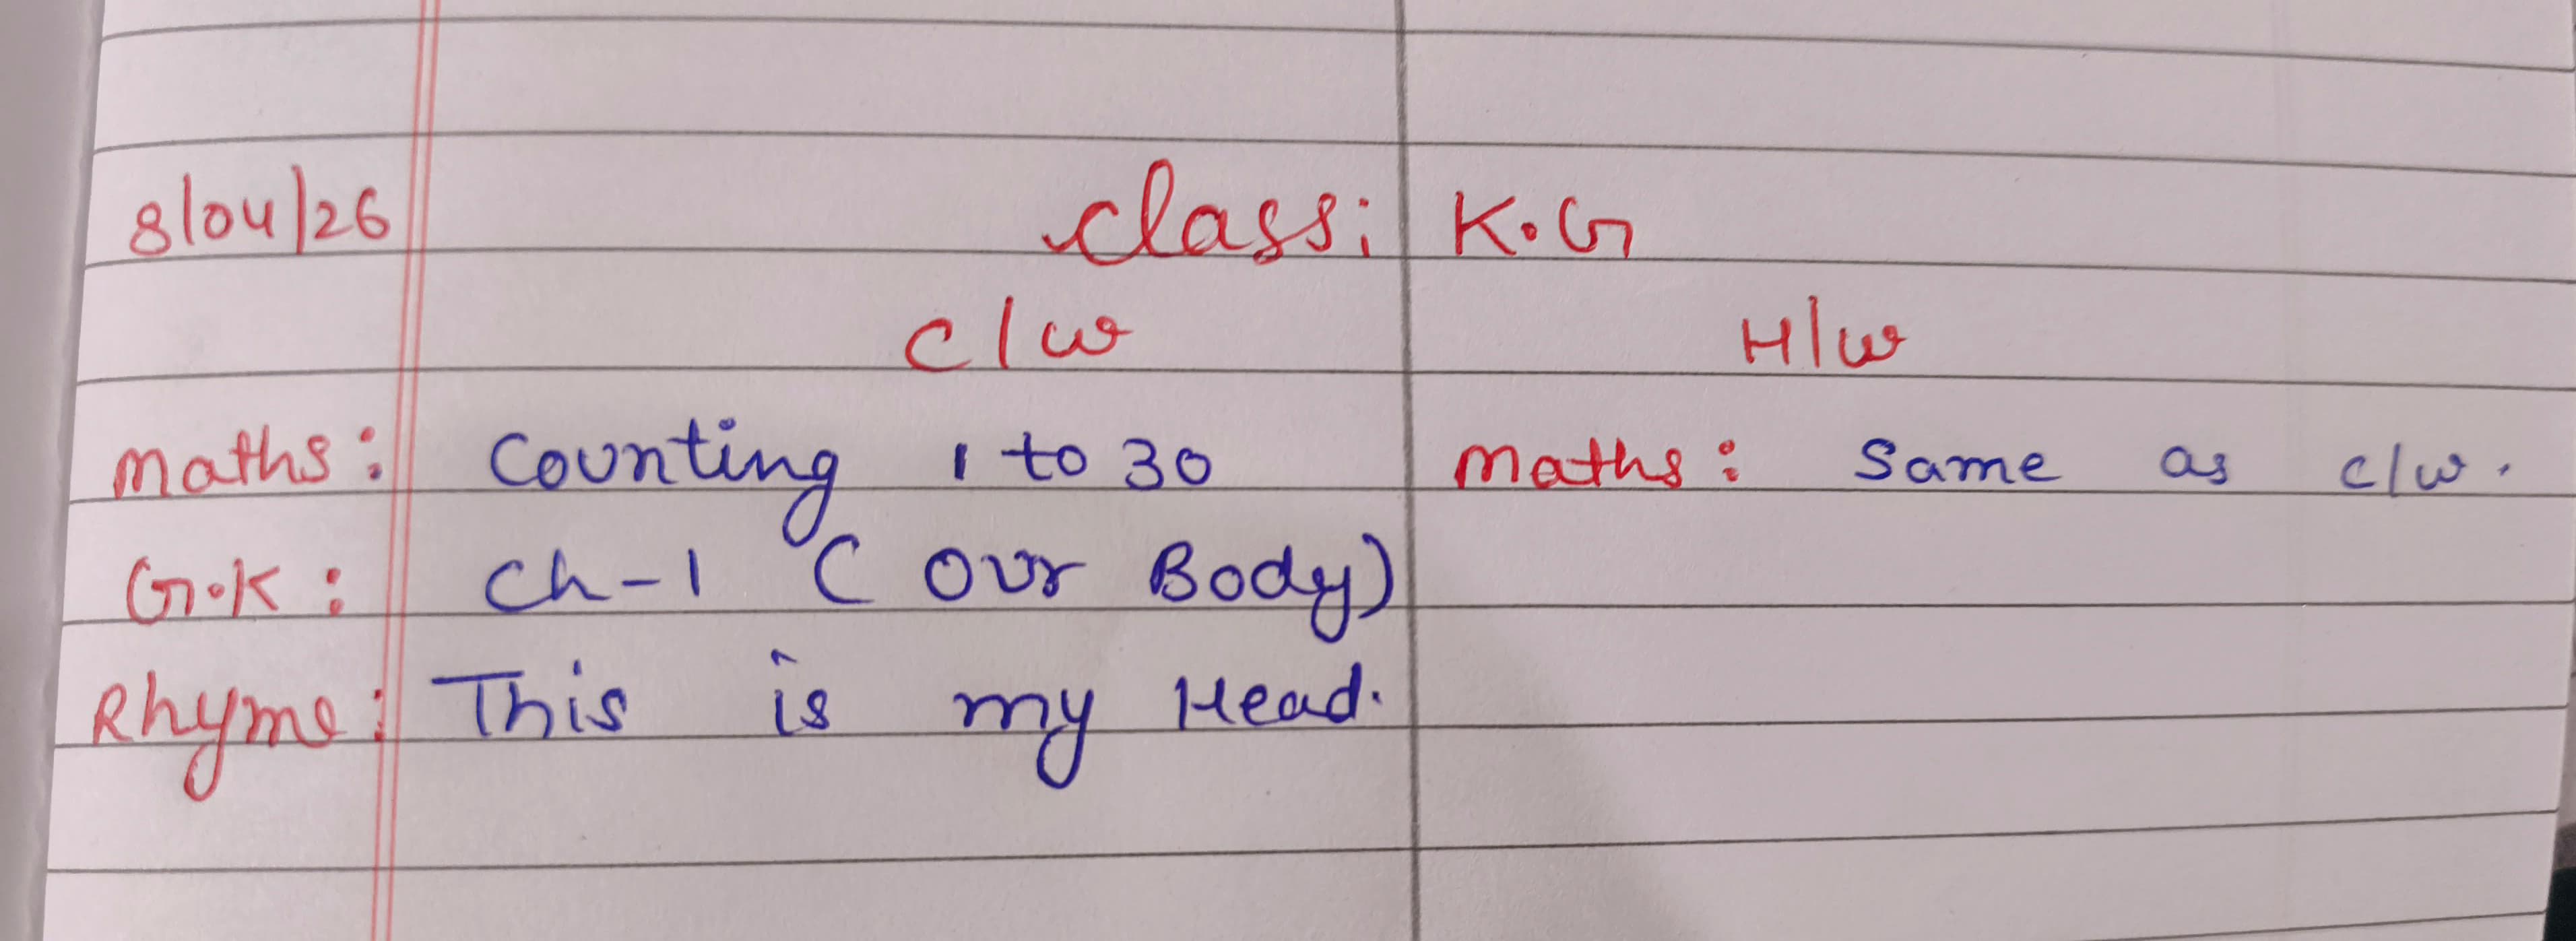 8/04/26 Class: K.G
C/w H/w
Maths: Counting 1 to 30 Maths: Same as c/w.
G.K: Ch-1 (Our Body)
Rhyme: This is my Head.